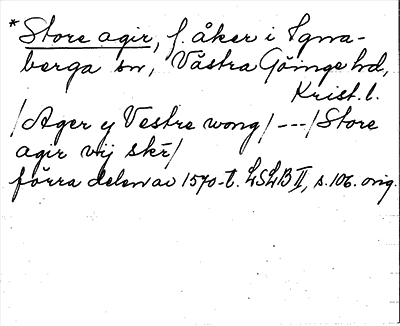 * Store agir, f. åker i Igna-
berga sn, Västra Göinge hd,
Krist. l.
/Ager y Vestre wong/ --- /Store
agir vij skr/
förra delen av 1570-t. LSLB II, s. 106. orig.